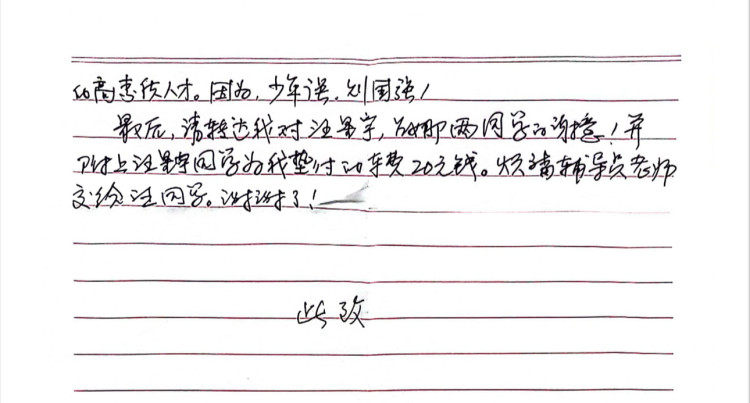 的高素质人才。因为,少年强,则国强!
最后,请转达我对汪昱宇, 那两同学的谢意!并
附上汪昱宇同学为我垫付的车费20元钱。烦请辅导员老师
交给汪同学。谢谢了!
此致